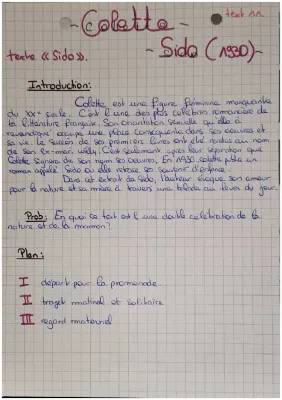 - Colette -
text 11
texte « Sido ».
- Sido (1930) -
Introduction:
Colette est une figure féminine marquante
du XXe siècle. C'est l'une des plus célèbres romancière de
la littérature française. Son orientation sensuelle qu'elle a
revendiquée occupe une place conséquente dans ses oeuvres et
sa vie. Le succès de ses premiers livres ont été rendus au nom
de son ex-mari Willy. C'est seulement après leur séparation que
Colette signera de son nom ses oeuvres. En 1930 colette publie un
roman appelé Sido où elle retrace ses souvenir d'enfance.
Dans cet extrait de Sido, l'auteur évoque son amour
pour la nature et sa mère à travers une balade au lever du jour.
Prob: En quoi ce text est il une double célébration de la
nature et de la maman?
Plan:
I départ pour la promenade
II trajet matinal et solitaire
III regard maternel